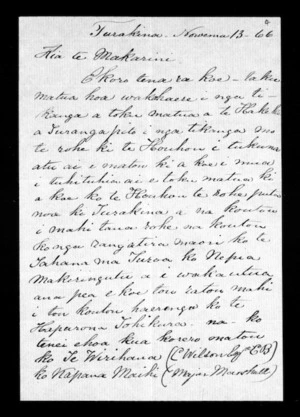 Turakina. Nowema 13 - 66
Kia te Makarini
E koro tena ra koe - ta kua
matua hoa wakahaere i nga ti-
kanga a toku matua a te
a Turanga pito i nga tikanga mo
te rohe ki te Houhou i tukuna
atu ai e matou ki a koe i mua
i tuhituhia ai e toku matua ki
a koe ko te Houhou te rohe puta
noa ki Turakina a na koutou
i mahi taua rohe na koutou
ko nga rangatira maori ko te
Tahana ma Turoa ko Nepia
Makaringutu a i wakaulua
ana pea e koe tou ratou mahi
i tou koutou haerenga ko te
Harparona Tohikura. na ko
tenei ehoa kua korero matou
ko Te Wirihana (C Wilson Esqr CB)
ko Napana Maihi (Major Marshall)